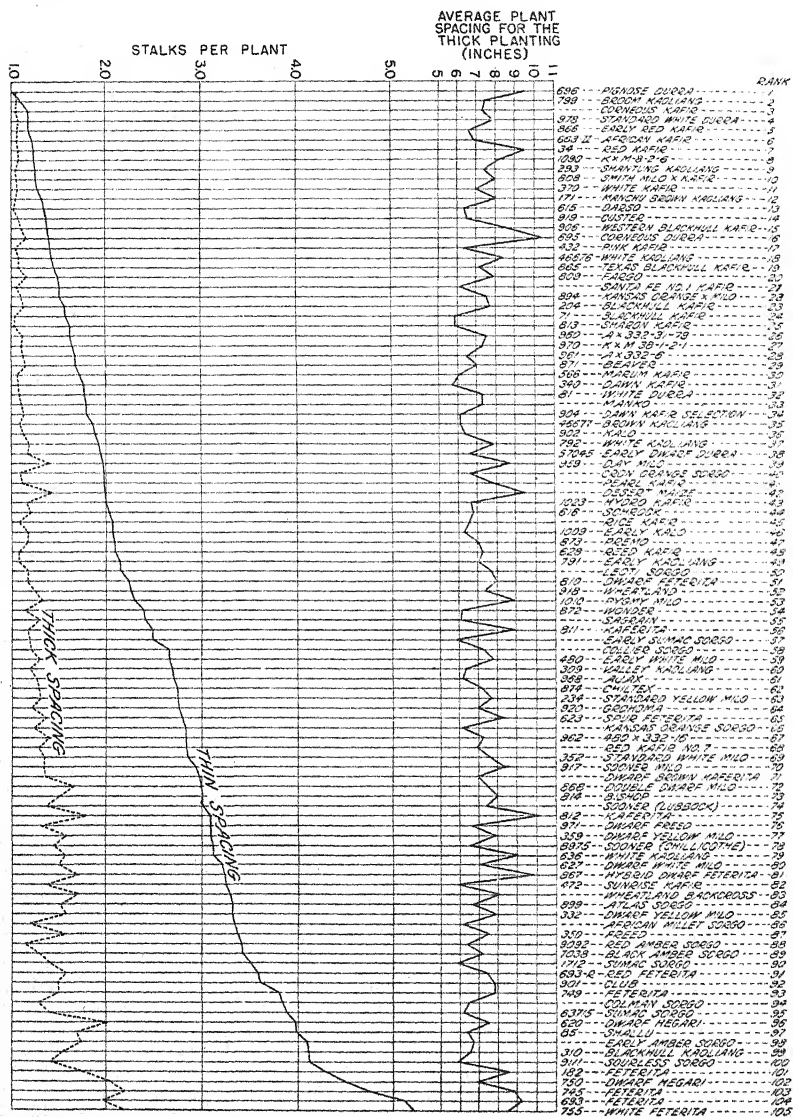 AVERAGE PLANT
SPACING FOR THE
THICK PLANTING
(INCHES)
STALKS PER PLANT
1.0 2.0 3.0 4.0 5.0 5 6 7 8 9 10 11
RANK
696 PIGNOSE DURRA 1
799 BROOM KAOLIANG 2
CORNEOUS KAFIR 3
978 STANDARD WHITE DURRA 4
866 EARLY RED KAFIR 5
663 II AFRICAN KAFIR 6
34 RED KAFIR 7
1090 K×M-8-2-6 8
293 SHANTUNG KAOLIANG 9
808 SMITH MILO × KAFIR 10
370 WHITE KAFIR 11
171 MANCHU BROWN KAOLIANG 12
615 DARSO 13
919 CUSTER 14
906 WESTERN BLACKHULL KAFIR 15
695 CORNEOUS DURRA 16
432 PINK KAFIR 17
46676 WHITE KAOLIANG 18
865 TEXAS BLACKHULL KAFIR 19
809 FARGO 20
SANTA FE NO.1 KAFIR 21
894 KANSAS ORANGE × MILO 22
204 BLACKHULL KAFIR 23
71 BLACKHULL KAFIR 24
813 SHARON KAFIR 25
960 A×332-31-79 26
970 K×M 38-1-2-1 27
961 A×332-6 28
871 BEAVER 29
566 MARUM KAFIR 30
340 DAWN KAFIR 31
81 WHITE DURRA 32
MANKO 33
904 DAWN KAFIR SELECTION 34
46677 BROWN KAOLIANG 35
902 KALO 36
792 WHITE KAOLIANG 37
57045 EARLY DWARF DURRA 38
959 DAY MILO 39
ORANGE SORGO 40
PEARL KAFIR 41
DESERT MAIZE 42
1023 HYDRO KAFIR 43
616 SCHROCK 44
RICE KAFIR 45
1009 EARLY KALO 46
873 PREMO 47
628 REED KAFIR 48
791 EARLY KAOLIANG 49
LEOTI SORGO 50
810 DWARF FETERITA 51
918 WHEATLAND 52
1010 PYGMY MILO 53
872 WONDER 54
SAGRAIN 55
811 KAFERITA 56
EARLY SUMAC SORGO 57
COLLIER SORGO 58
480 EARLY WHITE MILO 59
309 VALLEY KAOLIANG 60
968 AJAX 61
874 CHILTEX 62
234 STANDARD YELLOW MILO 63
920 GROHOMA 64
623 SPUR FETERITA 65
KANSAS ORANGE SORGO 66
962 480 × 332-16 67
RED KAFIR NO. 7 68
352 STANDARD WHITE MILO 69
917 SOONER MILO 70
DWARF BROWN KAFERITA 71
868 DOUBLE DWARF MILO 72
814 BISHOP 73
SOONER (LUBBOCK) 74
812 KAFERITA 75
971 DWARF FREED 76
359 DWARF YELLOW MILO 77
8975 SOONER (CHILLICOTHE) 78
636 WHITE KAOLIANG 79
627 DWARF WHITE MILO 80
867 HYBRID DWARF FETERITA 81
472 SUNRISE KAFIR 82
WHEATLAND BACKCROSS 83
899 ATLAS SORGO 84
332 DWARF YELLOW MILO 85
AFRICAN MILLET SORGO 86
350 FREED 87
9092 RED AMBER SORGO 88
7038 BLACK AMBER SORGO 89
1712 SUMAC SORGO 90
693-R RED FETERITA 91
901 CLUB 92
749 FETERITA 93
COLMAN SORGO 94
63715 SUMAC SORGO 95
620 DWARF HEGARI 96
85 SHALLU 97
EARLY AMBER SORGO 98
310 BLACKHULL KAOLIANG 99
9111 SOURLESS SORGO 100
182 FETERITA 101
750 DWARF HEGARI 102
745 FETERITA 103
693 FETERITA 104
755 WHITE FETERITA 105
THICK SPACING
THIN SPACING